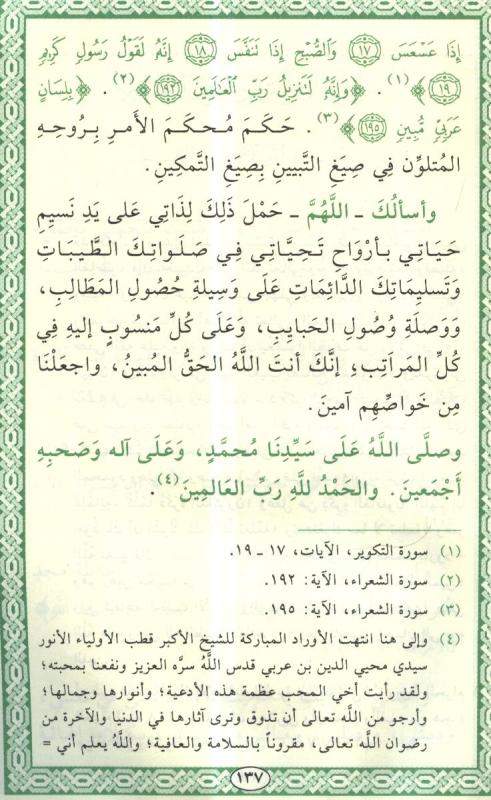 إِذَا عَسْعَسَ ﴿١٧﴾ وَالصُّبْحِ إِذَا تَنَفَّسَ ﴿١٨﴾ إِنَّهُ لَقَوْلُ رَسُولٍ كَرِيمٍ
﴿١٩﴾ ﴾(١). ﴿ وَإِنَّهُ لَتَنزِيلُ رَبِّ الْعَالَمِينَ ﴿١٩٢﴾ ﴾(٢). ﴿ بِلِسَانٍ
عَرَبِيٍّ مُّبِينٍ ﴿١٩٥﴾ ﴾(٣). حَكَمَ مُحكَمَ الأَمرِ بِرُوحِهِ
المُتلوِّن فِي صِيَغِ التَّبيينِ بِصِيَغِ التَّمكِينِ.
وأسألُكَ ـ اللَّهُمَّ ـ حَمْلَ ذَلِكَ لِذَاتِي عَلى يَدِ نَسِيمِ
حَيَاتِي بأرْوَاحِ تَحِيَّاتِي فِي صَلَواتِكَ الطَّيِبَاتِ
وَتَسليِمَاتِكَ الدَّائِمَاتِ عَلَى وَسِيلةِ حُصُولِ المَطَالِبِ،
وَوَصَلَةِ وُصُولِ الحَبايِبِ، وَعَلَى كُلِّ مَنسُوبٍ إليهِ فِي
كُلِّ المَرَاتِبِ؛ إنَّكَ أنتَ اللَّهُ الحَقُّ المُبينُ، واجعَلْنَا
مِن خَواصِّهِم آمينَ.
وصلَّى اللَّهُ عَلَى سَيِّدِنَا مُحمَّدٍ، وَعَلَى آله وَصَحبِهِ
أجْمَعينَ. والحَمْدُ للَّهِ رَبِّ العَالمِينَ(٤).
(١) سورة التكوير، الآيات، ١٧ ـ ١٩.
(٢) سورة الشعراء، الآية: ١٩٢.
(٣) سورة الشعراء، الآية: ١٩٥.
(٤) وإلى هنا انتهت الأوراد المباركة للشيخ الأكبر قطب الأولياء الأنور
سيدي محيي الدين بن عربي قدس اللَّهُ سرَّه العزيز ونفعنا بمحبته؛
ولقد رأيت أخي المحب عظمة هذه الأدعية؛ وأنوارها وجمالها؛
وأرجو من اللَّه تعالى أن تذوق وترى آثارها في الدنيا والآخرة من
رضوان اللَّه تعالى، مقروناً بالسلامة والعافية؛ واللَّهُ يعلم أني =
١٣٧